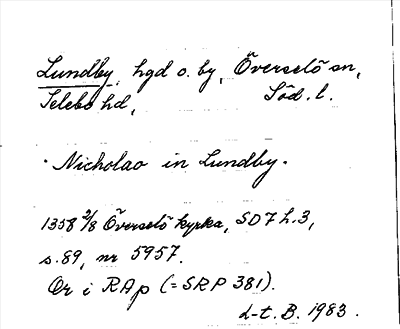 Lundby, hgd o. by, Överselö sn,
Selebo hd, Söd. l.
· Nicholao in Lundby.
1358 2/8 Överselö kyrka, SD7 h.3,
s.89, nr 5957.
Or i RAp (= SRP 381).
L-t. B. 1983.